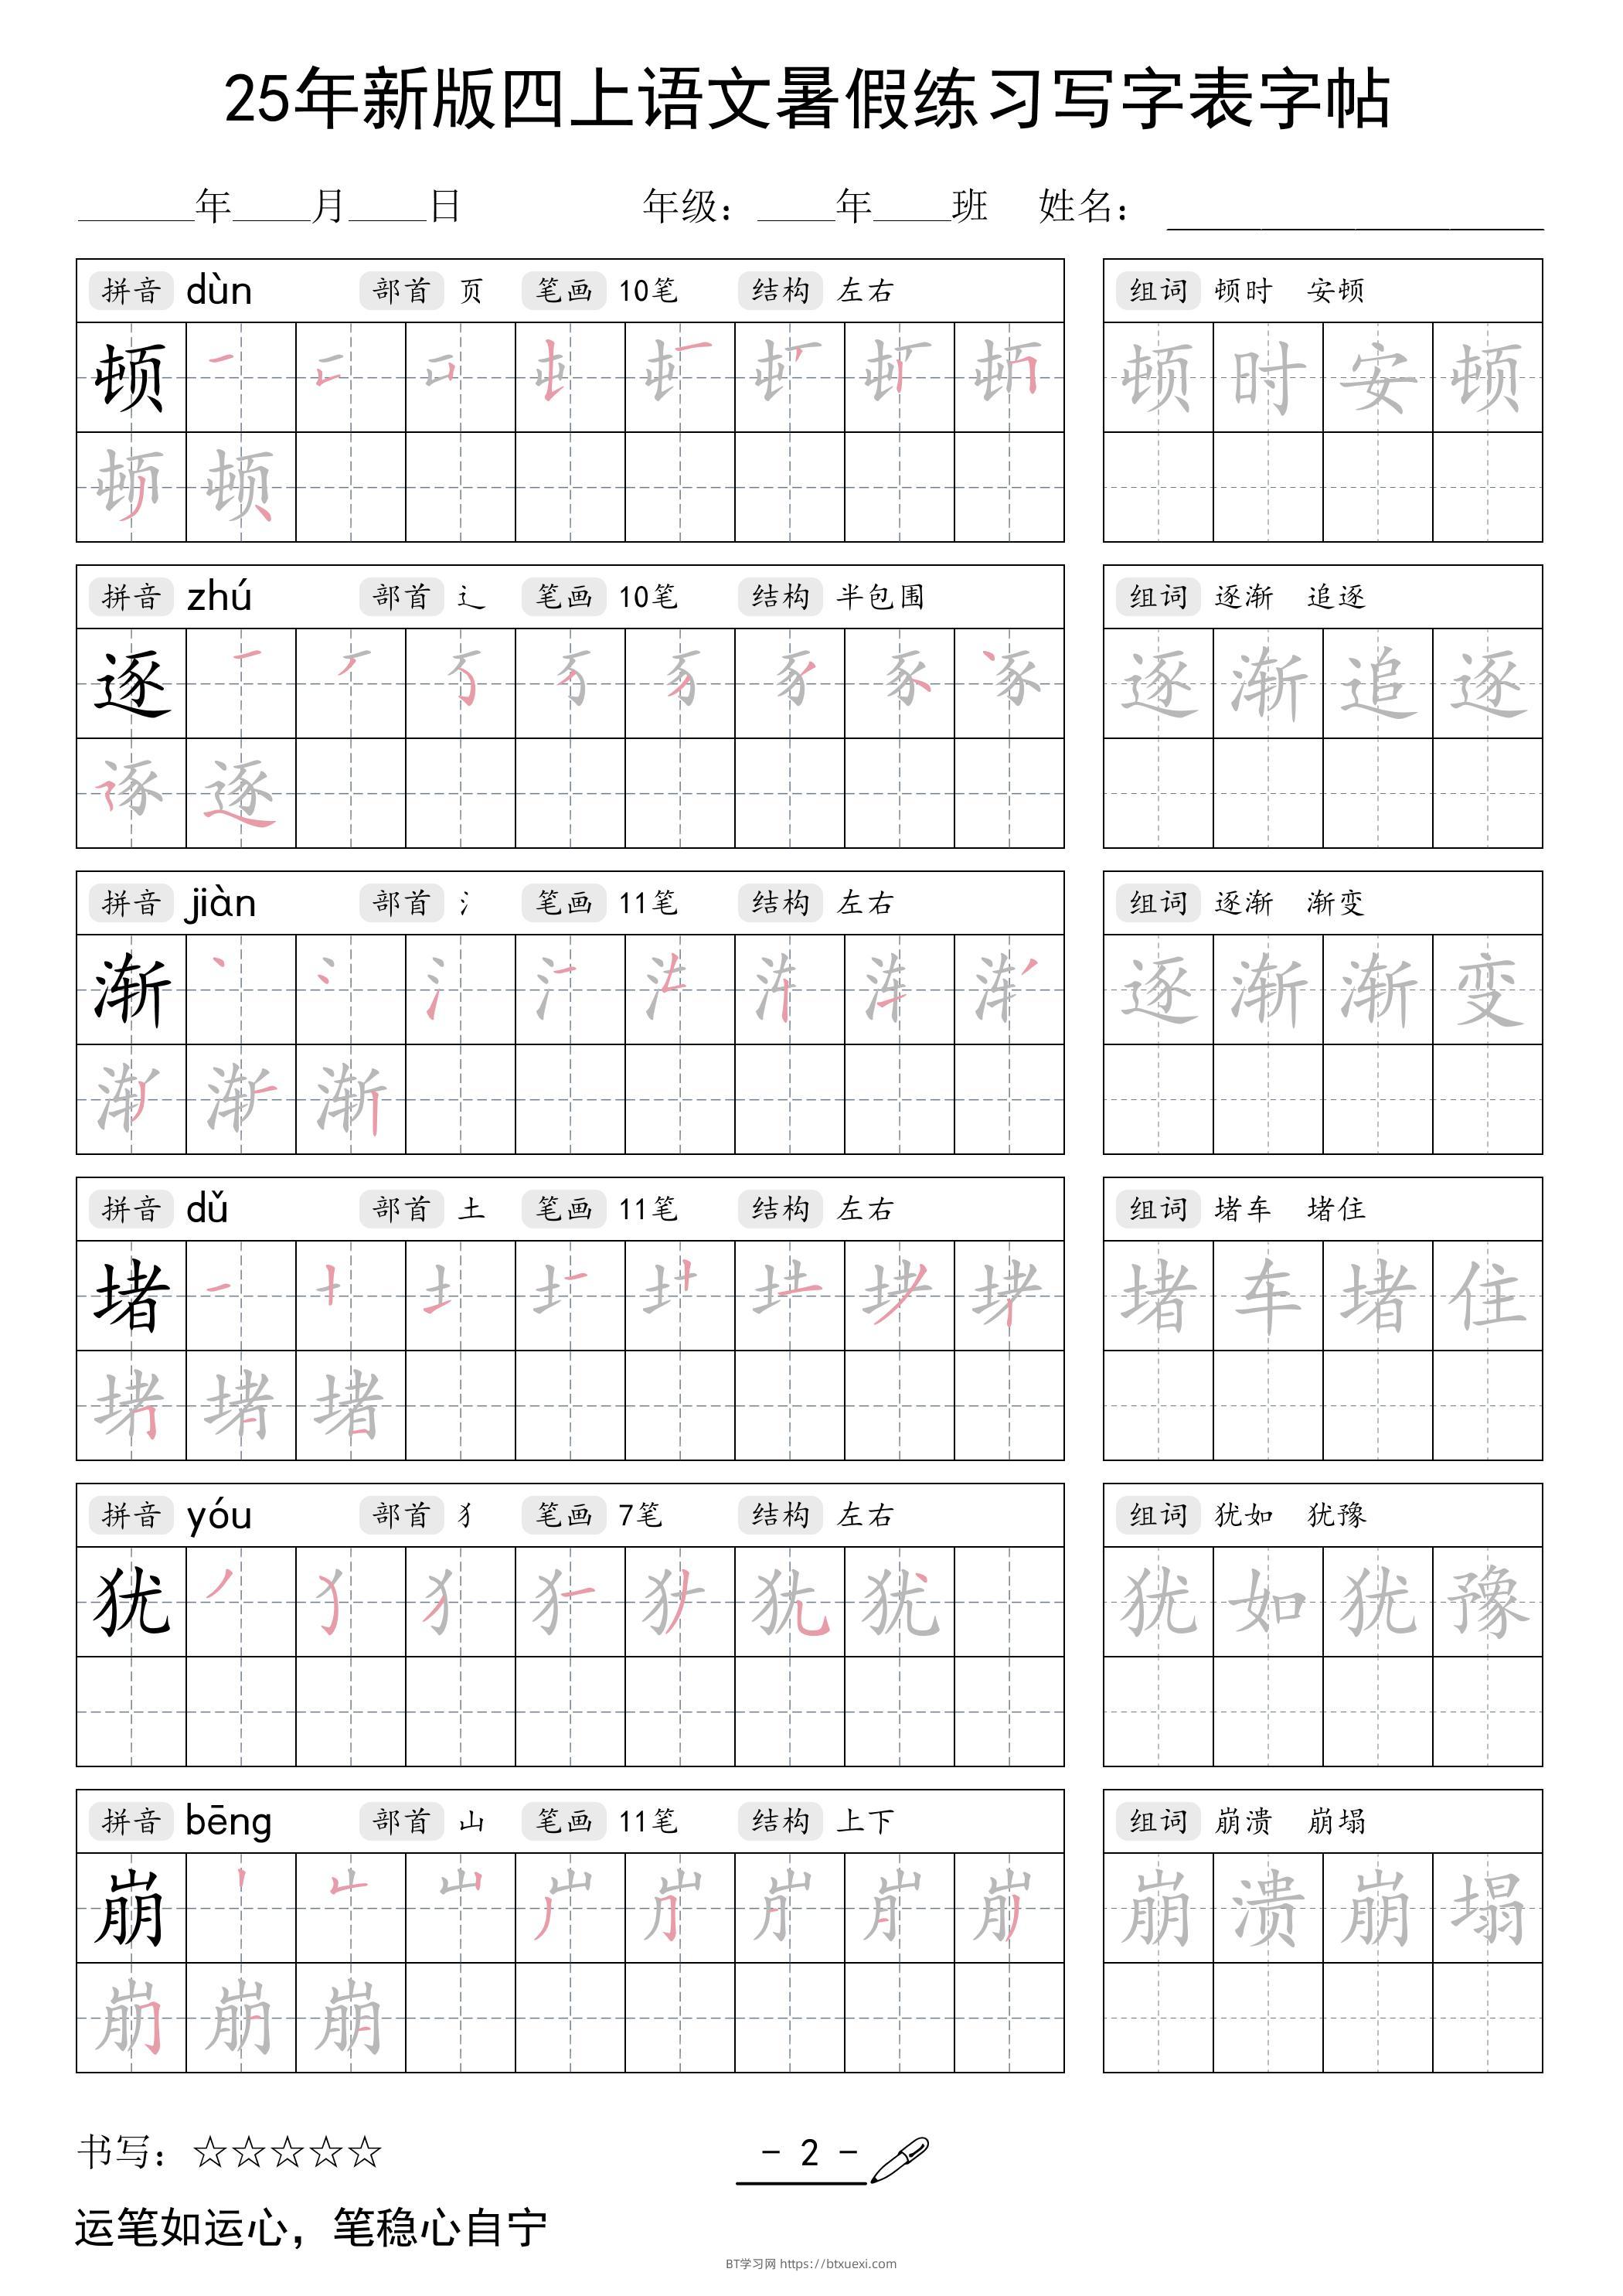 25年新版四上语文暑假练习写字表字帖
____年____月____日 年级：____年____班 姓名：
拼音 dùn 部首 页 笔画 10笔 结构 左右 组词 顿时 安顿
顿 顿时安顿
顿
拼音 zhú 部首 辶 笔画 10笔 结构 半包围 组词 逐渐 追逐
逐 逐渐追逐
逐
拼音 jiàn 部首 氵 笔画 11笔 结构 左右 组词 逐渐 渐变
渐 逐渐渐变
渐
拼音 dǔ 部首 土 笔画 11笔 结构 左右 组词 堵车 堵住
堵 堵车堵住
堵
拼音 yóu 部首 犭 笔画 7笔 结构 左右 组词 犹如 犹豫
犹 犹 犹如犹豫
拼音 bēng 部首 山 笔画 11笔 结构 上下 组词 崩溃 崩塌
崩 崩溃崩塌
崩
书写：☆☆☆☆☆
- 2 -
运笔如运心，笔稳心自宁
BT学习网 https://btxuexi.com